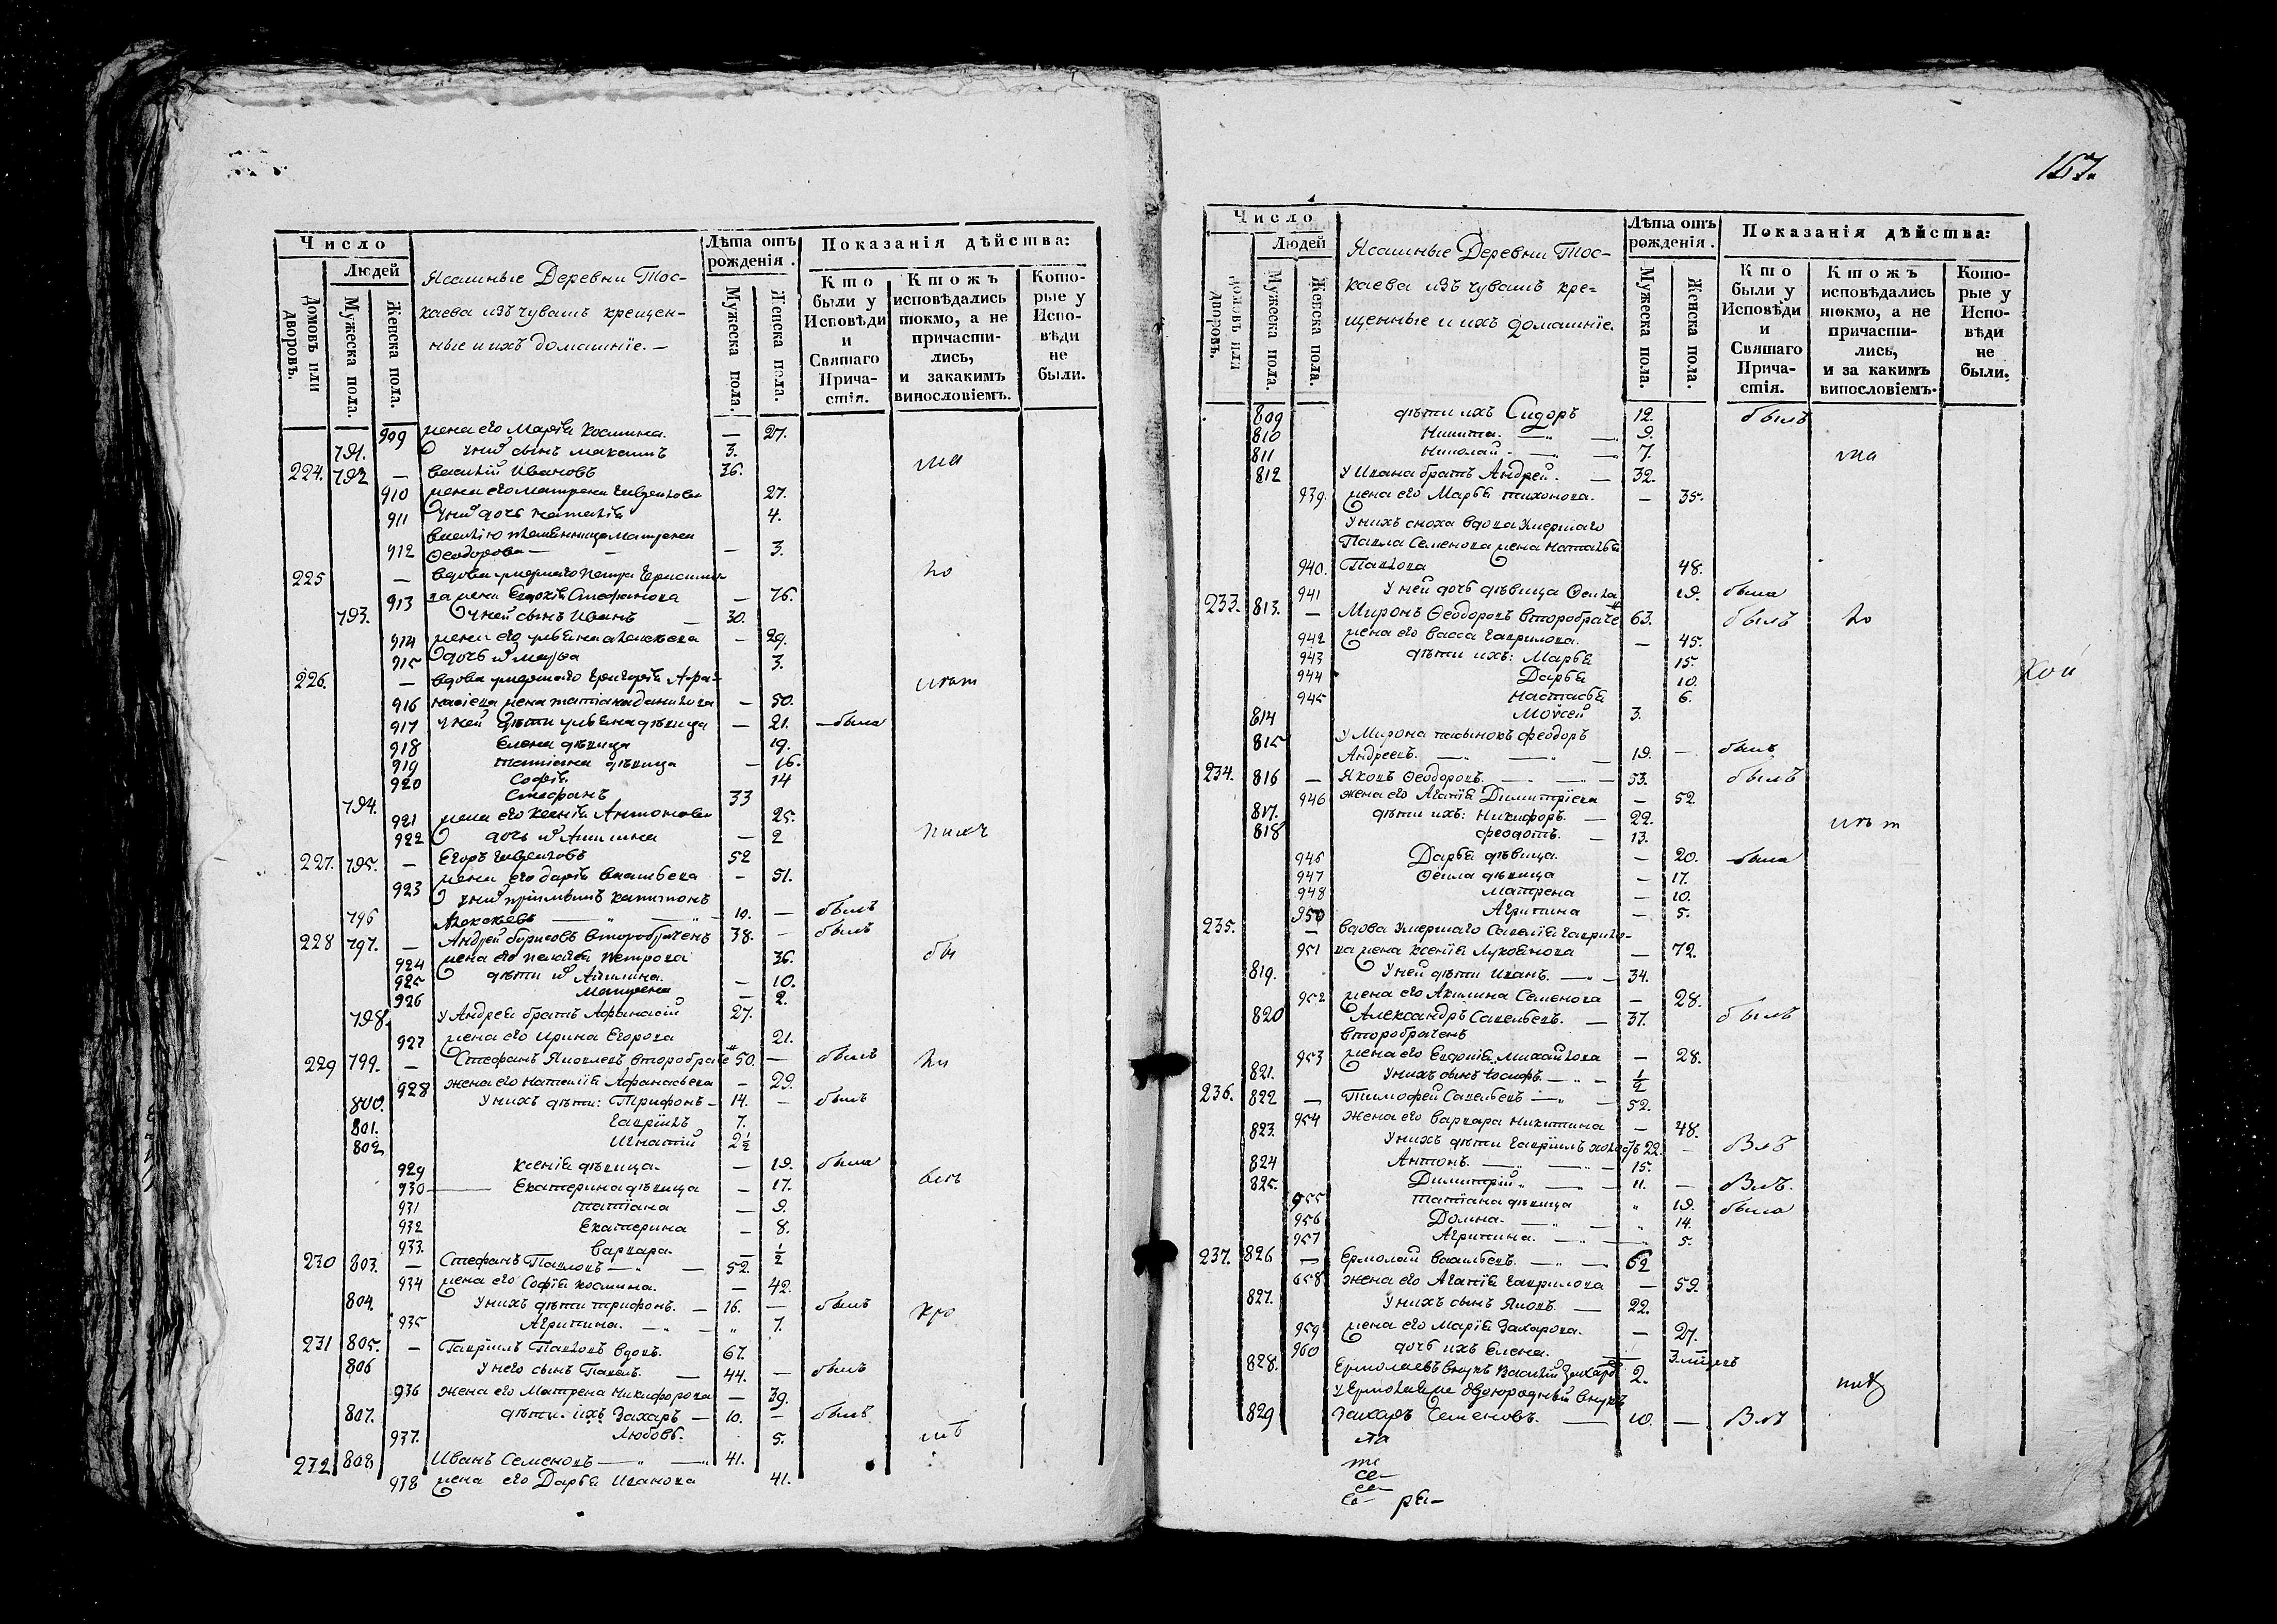 167.
Число
Людей
Домовъ или дворовъ.
Мужеска пола.
Женска пола.
Ясашные Деревни Тос-
каева изъ чувашъ крещен-
ные и ихъ домашніе. —
Лѣта отъ рожденія.
Мужеска пола.
Женска пола.
Показанія дѣйства:
Кто были у Исповѣди и Святаго Прича-стія.
Ктожъ исповѣдались токмо, а не причасти-лись, и закакимъ винословіемъ.
Кото-рые у Испо-вѣди не были.
909 жена его Марія Космина. — 27.
791. у ниⷯ сынъ Максимъ 3.
224. 792 — Василій Ивановъ 36.
910 жена его Матрена 27.
911 у ниⷯ дочь Наталія 4.
Василію племянница Матрена
912 Ѳеодорова — — 3.
225 — вдова умершаго Петра
913 ва жена Евдокія Стефанова — 76.
793. У ней сынъ Иванъ — 30.
914 жена его Ульяна Алексѣева — 29.
915 дочь иⷯ Марѳа 3.
226. — вдова умершаго Григорія Афа-
916 насіева жена Татіана Данилова — 50.
917 у ней дѣти Ульяна дѣвица — 21. — была
918 Елена дѣвица 19.
919 Татіана дѣвица — 16.
920 Софія 14
794. Стефанъ 33
921 жена его Ксенія Антонова 25.
922 дочь иⷯ Акилина — 2
227. 795. — Егоръ 52
923 жена его Дарія Васильева — 51.
у ниⷯ пріимышъ Капитонъ
796 Алексѣевъ — 10. — былъ
228 797. — Андрей Борисовъ второбраченъ 38. — былъ
924 жена его Пелагея Петрова 36.
925 дѣти иⷯ Акилина. — 10.
926 Матрена — 2.
798. у Андрея братъ Афанасій 27.
927 жена его Ирина Егорова 21.
229 799. — Стефанъ Яковлевъ второбраче 50. — былъ
928 жена его Наталія Афанасьева — 29.
800. У нихъ дѣти: Трифонъ — 14. — былъ
801. Гавріилъ 7.
802 Игнатій 2½
929 Ксенія дѣвица. — 19. была
930 — Екатерина дѣвица — 17.
931 Татіана — 9.
932 Екатерина — 8.
933. Варвара. — ½
230 803. — Стефанъ Павловъ — 52.
934 жена его Софія Космина. — 42.
804. У нихъ дѣти Трифонъ. — 16. — былъ
935 Агрипина. — " 7.
231 805. — Гавріилъ Павловъ вдовъ. 67.
806 У него сынъ Павелъ. — 44. — былъ
936 жена его Матрена Никифорова — 39.
807. дѣти ихъ Захаръ — 10. — былъ
937. Любовь. 5.
232 808 Иванъ Семеновъ — 41.
938 жена его Дарья Иванова 41.
Число
Людей
Домовъ или дворовъ.
Мужеска пола.
Женска пола.
Ясашные Деревни Тос-
каева изъ чувашъ кре-
щенные и ихъ домашніе.
Лѣта отъ рожденія.
Мужеска пола.
Женска пола.
Показанія дѣйства:
Кто были у Исповѣди и Святаго Прича-стія.
Ктожъ исповѣдались токмо, а не причасти-лись, и за какимъ винословіемъ.
Кото-рые у Испо-вѣди не были.
809 дѣти ихъ Сидоръ 12. былъ
810 Никита. — 9.
811 Николай — 7.
812 У Ивана братъ Андрей. — 32.
939. жена его Марья Тихонова. — 35.
У нихъ сноха вдова умершаго
Павла Семенова жена Наталья
940. Павлова 48.
941 У ней дочь дѣвица Ѳекла 19. была
233. 813. — Миронъ Ѳеодоровъ второбраче 63. былъ
942 жена его Васса Гаврилова. — 45.
943 дѣти ихъ: Марья 15.
944 Дарья 10.
945 Настасья 6.
814 Мойсей 3.
815 У Мирона пасынокъ Феодоръ
Андреевъ. — 19. — былъ
234. 816 — Яковъ Ѳеодоровъ. — 53. былъ
946 жена его Агапія Димитріева — 52
817. дѣти ихъ: Никифоръ. — 22.
818 Феодотъ. — 13.
946 Дарья дѣвица. — 20. была
947 Ѳекла дѣвица — 17.
948 Матрена — 10.
950 Агрипина — 5.
235. — вдова умершаго Савелія Гаврило-
951 ва жена Ксенія Лукоянова — 72.
819. У ней дѣти Иванъ. — 34.
952 жена его Акилина Семенова — 28.
820 Александръ Савельевъ. — 37. былъ
второбраченъ
953 жена его Евдокія Михайлова — 28.
821. У нихъ сынъ Іосифъ. — ½
236. 822 — Тимофей Савельевъ — 52.
954 жена его Варвара Никитина — 48.
823. У нихъ дѣти Гавріилъ холостъ 22. —
824 Антонъ. — 15.
825. Димитрій — 11. —
955 Татіана дѣвица " 19. была
956 Домна. — " 14.
957 Агрипина. — 5.
237. 826 — Ермолай Васильевъ. — 62
658 жена его Агапія Гаврилова — 59.
827. У нихъ сынъ Яковъ. — 22.
959 жена его Марія Захарова. — 27.
960 дочь ихъ Елена.
828. Ермолаевъ внукъ Василій 2.
у Ермолая же двоюродный внукъ
829 Захаръ Семеновъ. — 10. —
кой